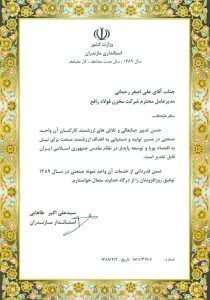 وزارت کشور
استانداری مازندران
سال ۱۳۸۹ : سال همت مضاعف ، کار مضاعف
جناب آقای علی اصغر رحمانی
مدیرعامل محترم شرکت مخزن فولاد رافع
سلام علیکم
حسن تدبیر جنابعالی و تلاش های ارزشمند کارکنان آن واحد
صنعتی در مسیر تولید و دستیابی به اهداف ارزشمند صنعت برای نیل
به اقتصاد پویا و توسعه پایدار در نظام مقدس جمهوری اسلامی ایران
قابل تقدیر است.
ضمن قدردانی از خدمات آن واحد نمونه صنعتی در سال ۱۳۸۹
توفیق روزافزونتان را از درگاه خداوند متعال خواستارم.
سیدعلی اکبر طاهایی
استاندار مازندران
شماره :
تاریخ :